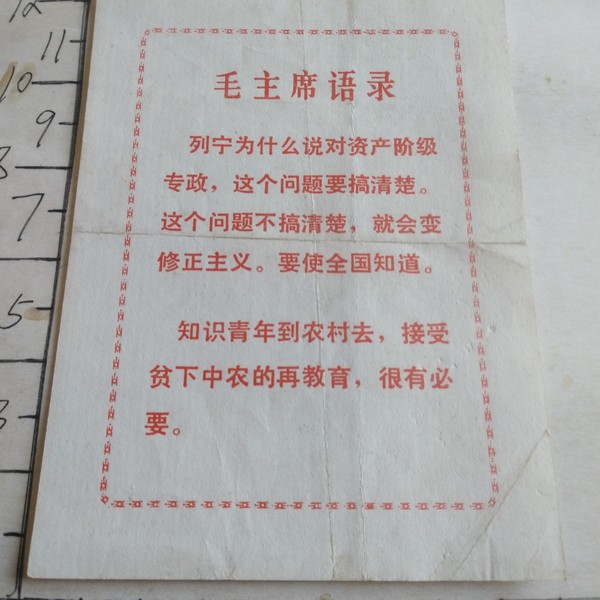 12
11
10
9
8
7
5
3
毛主席语录
列宁为什么说对资产阶级
专政，这个问题要搞清楚。
这个问题不搞清楚，就会变
修正主义。要使全国知道。
知识青年到农村去，接受
贫下中农的再教育，很有必
要。